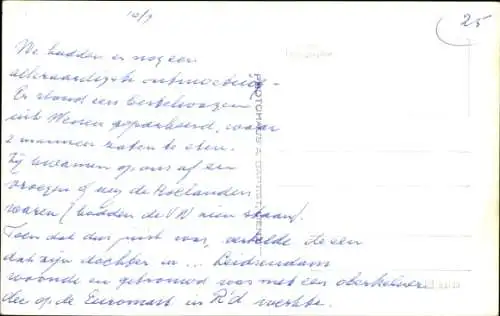 10/9
25
We hadden er nog een
alleraardigste ontmoeting -
Er stond een bestelwagen
uit Wenen geparkeerd, waar
2 mannen zaten te eten.
Zij kwamen op ons af en
vroegen of wij de Hollanders
waren (hadden de VW zien staan).
Toen dat dus juist was, vertelde de een
dat zijn dochter in ... Leidsendam
woonde en getrouwd was met een oberkelner
die op de Euromast in R'd werkte.